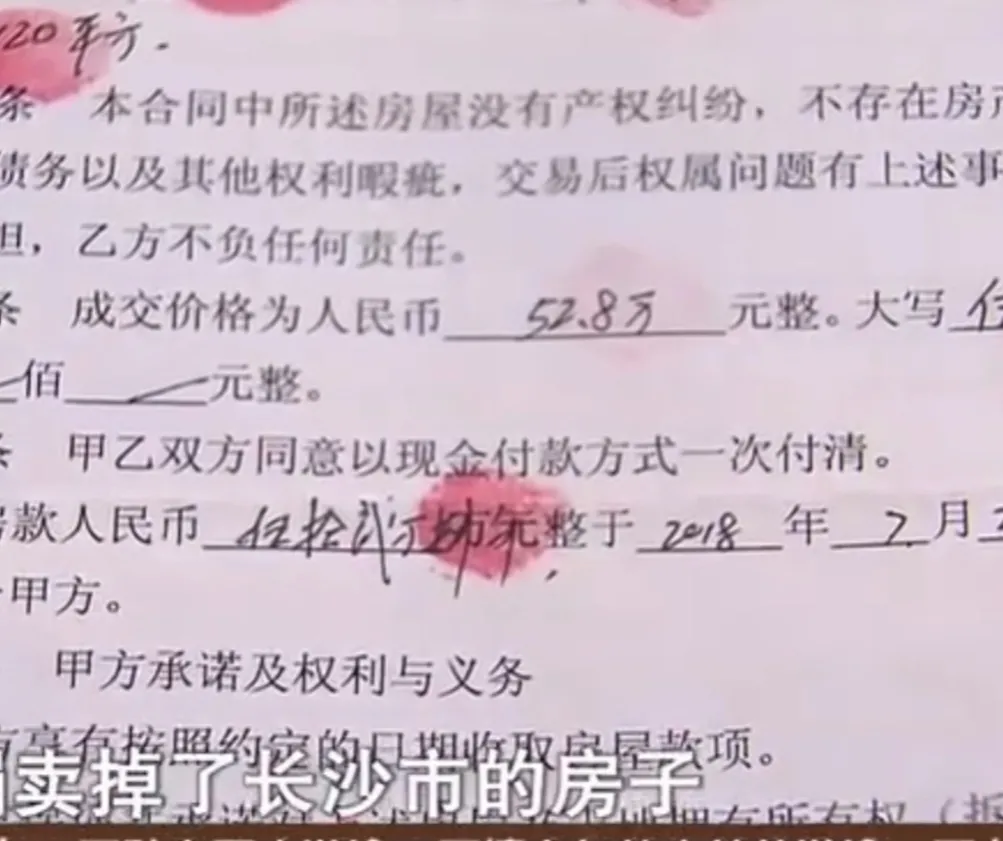 120平方.
条 本合同中所述房屋没有产权纠纷，不存在房产
债务以及其他权利暇疵，交易后权属问题有上述事
担，乙方不负任何责任。
条 成交价格为人民币 52.8万 元整。大写 伍
佰 元整。
条 甲乙双方同意以现金付款方式一次付清。
房款人民币 伍拾贰万 整于 2018 年 7 月
甲方。
甲方承诺及权利与义务
有享有按照约定的日期收取房屋款项。
卖掉了长沙市的房子
拥有所有权（拆